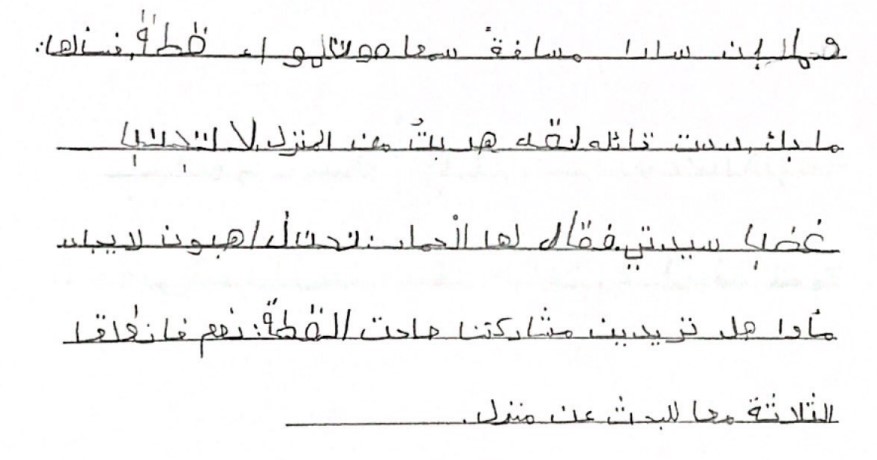 وما إن سارا مسافة سمعا صوت مواء قطة، فسألاها:
ما بك، ردت قائله لقد هربتُ من المنزل، لا تجنبا
غضب سيدتي، فقال لها الحمار: نحن ذاهبون لايجاد
مأوا هل تريدين مشاركتنا صاحت القطة: نعم فانطلقا
الثلاثة معا للبحث عن منزل.